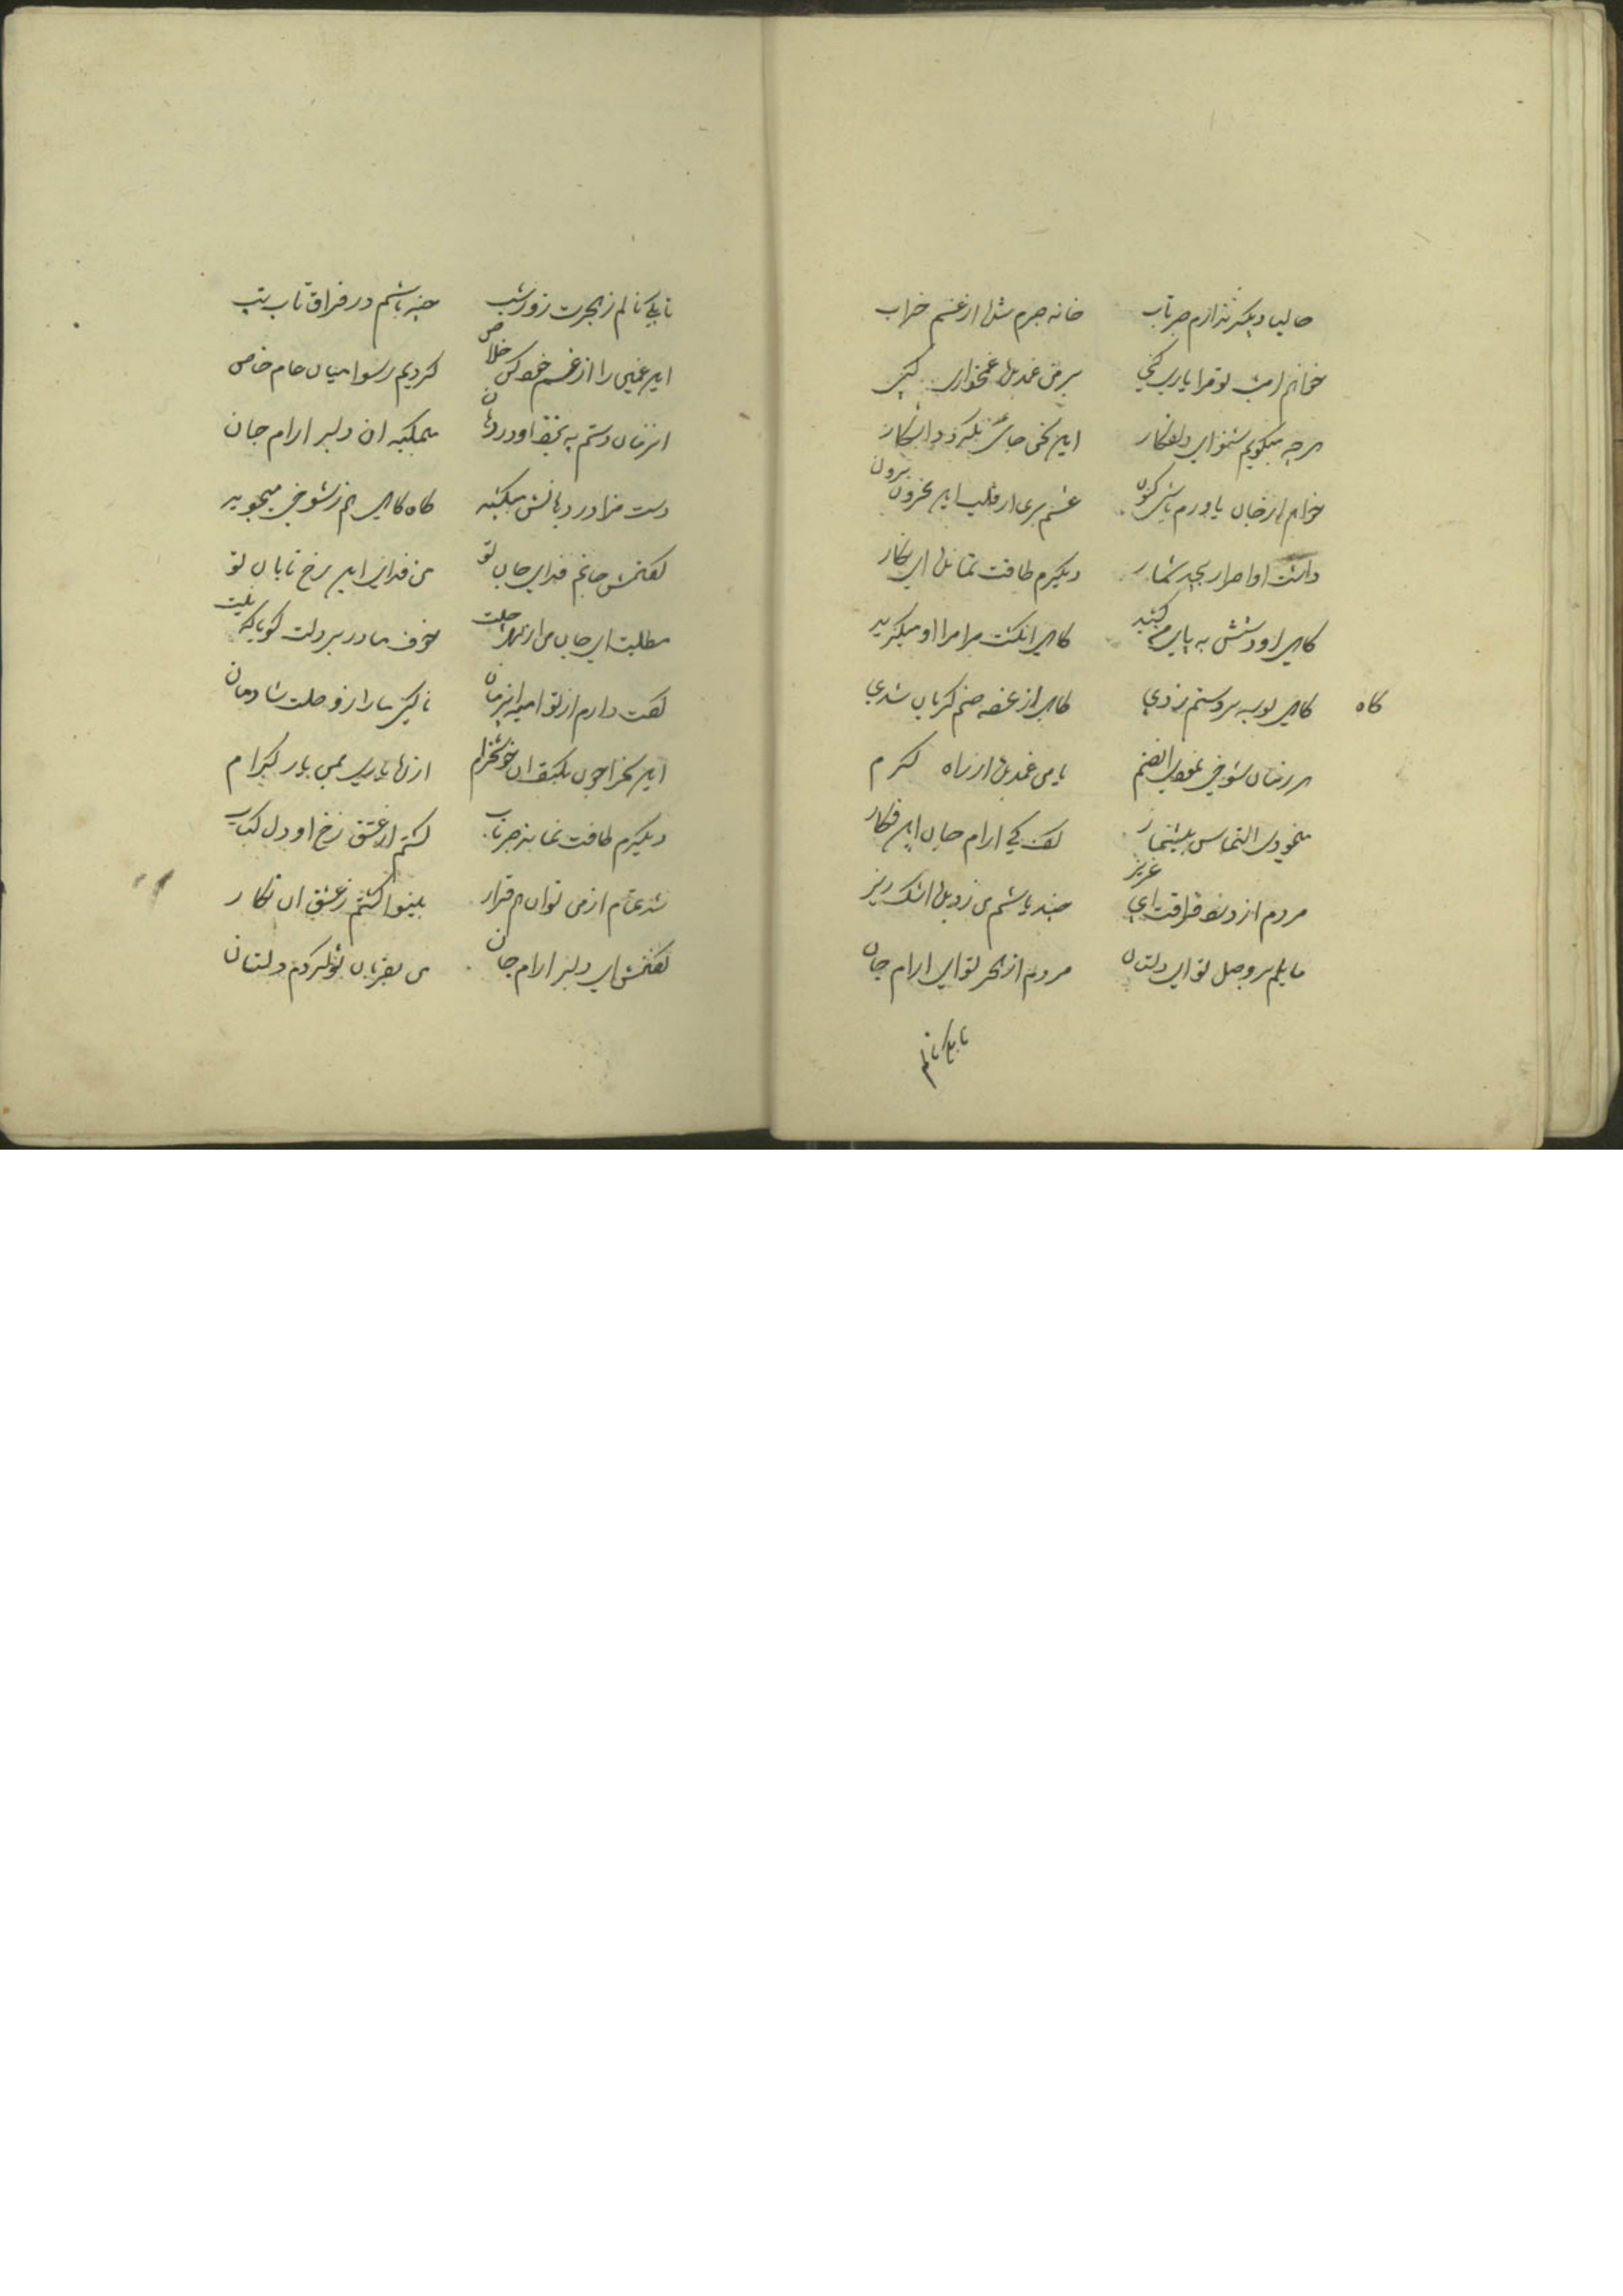 حالیا دیگر ندارم صبر تاب خانه صبرم شد از غم خراب
خواهم امشب تو مرا یاری کنی بر من غمدیده غمخواری کنی
هر چه میگویم شنو ای دلفکار این سخن جائی نگردد اشکار
خواهم از جان یاورم باشی کنون غم بری از قلب این محزون برون
داشت او اصرار بیحد شمار دیگرم طاقت نماند ای نکار
کاهی او دستش به پایم می کشید کاهی انکشت مرا او میکزید
کاه کاهی بوسه بر دستم زدی کاهی از غصه صنم کریان شدی
هر زمان شوخی نمودی انصنم با من غمدیده از راه کرم
مینمودی التماس بیشمار گفت کی ارام جان این فکار
مردم از درد فراقت ای عزیز چند باشم من ز دیده اشک ریز
مایلم بر وصل تو ای دلستان مردم از هجر تو ای ارام جان
تا بکی نالم
تا بکی نالم ز هجرت روز شب چند باشم در فراق تاب تب
این غمین را از غم خود کن خلاص کردیم رسوا میان عام خاص
انزمان دستم به نزد او در دهان میمکید ان دلبر ارام جان
دست مرا در دهانش میکشید کاه کاهی هم ز شوخی میجوید
گفتمش جانم فدای جان تو من فدای این رخ تابان تو
مطلبت ای جان من از بهر چلت خوف مادر بر دلت کویا که نیست
گفت دارم از تو امید این زمان تا کنی ما را ز وصلت شادمان
این سخن را چون بگفت ان خوشخرام از وفا یاری من یار کرام
دیگرم طاقت نماند صبر تاب گشتم از عشق رخ او دل کباب
شد تمام از من توان هم قرار بینوا گشتم ز عشق ان نکار
گفتمش ای دلبر ارام جان من بقربان تو گردم دلستان